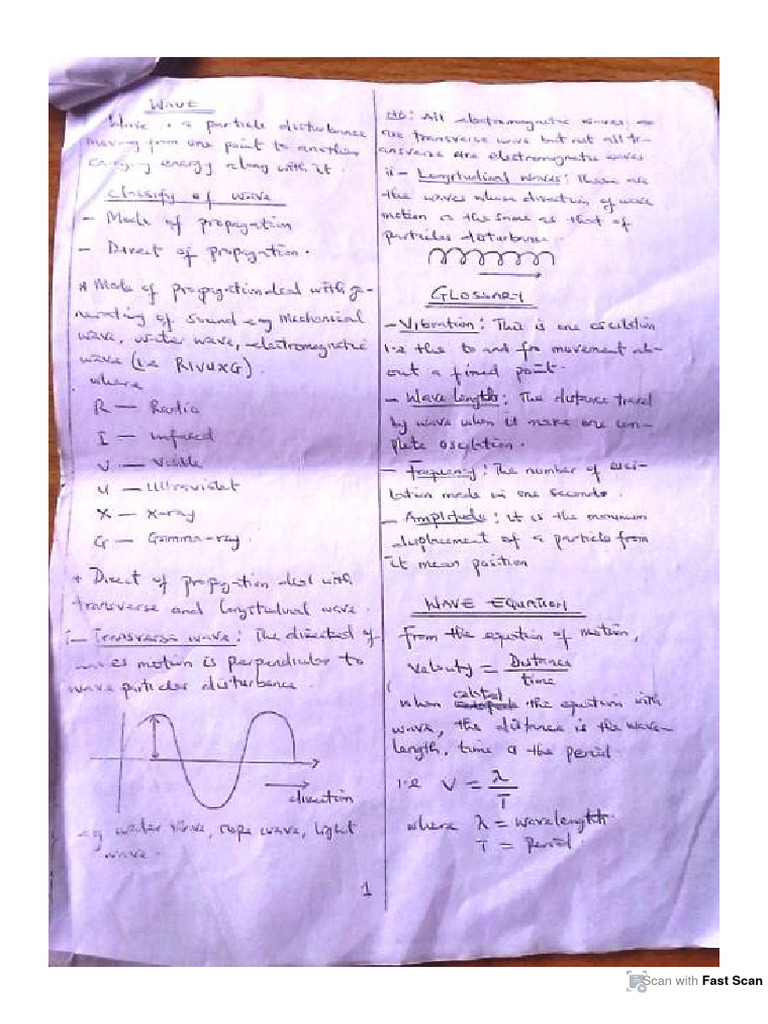 WAVE
Wave is a particle disturbance
moving from one point to another
carrying energy along with it.
Classify of wave
- Mode of propagation
- Direct of propagation.
* Mode of propagation deal with ge-
nerating of sound eg mechanical
wave, water wave, electromagnetic
wave (i.e RIVUXG).
where
R — Radio
I — Infrared
V — Visible
U — Ultraviolet
X — X-ray
G — Gamma-ray.
* Direct of propagation deal with
transverse and longitudinal wave.
i - Transverse wave: The directed of
waves motion is perpendicular to
wave particles disturbance.
direction
eg water wave, rope wave, light
wave.
1
NB: All electromagnetic waves
are transverse wave but not all tr-
ansverse are electromagnetic waves
ii - Longitudinal waves: These are
the waves whose direction of wave
motion is the same as that of
particles disturbance.
GLOSSARY
- Vibration: This is one oscillation
i.e the to and fro movement ab-
out a fixed point.
- Wave length: The distance travel
by wave when it make one com-
plete oscillation.
- Frequency: The number of osci-
lation made in one seconds.
- Amplitude: it is the maximum
displacement of a particle from
it mean position
WAVE EQUATION
From the equation of motion,
Velocity = Distance
time
when the equation with
wave, the distance is the wave-
length, time is the period.
i.e V = λ
T
where λ = wavelength
T = Period.
Scan with Fast Scan